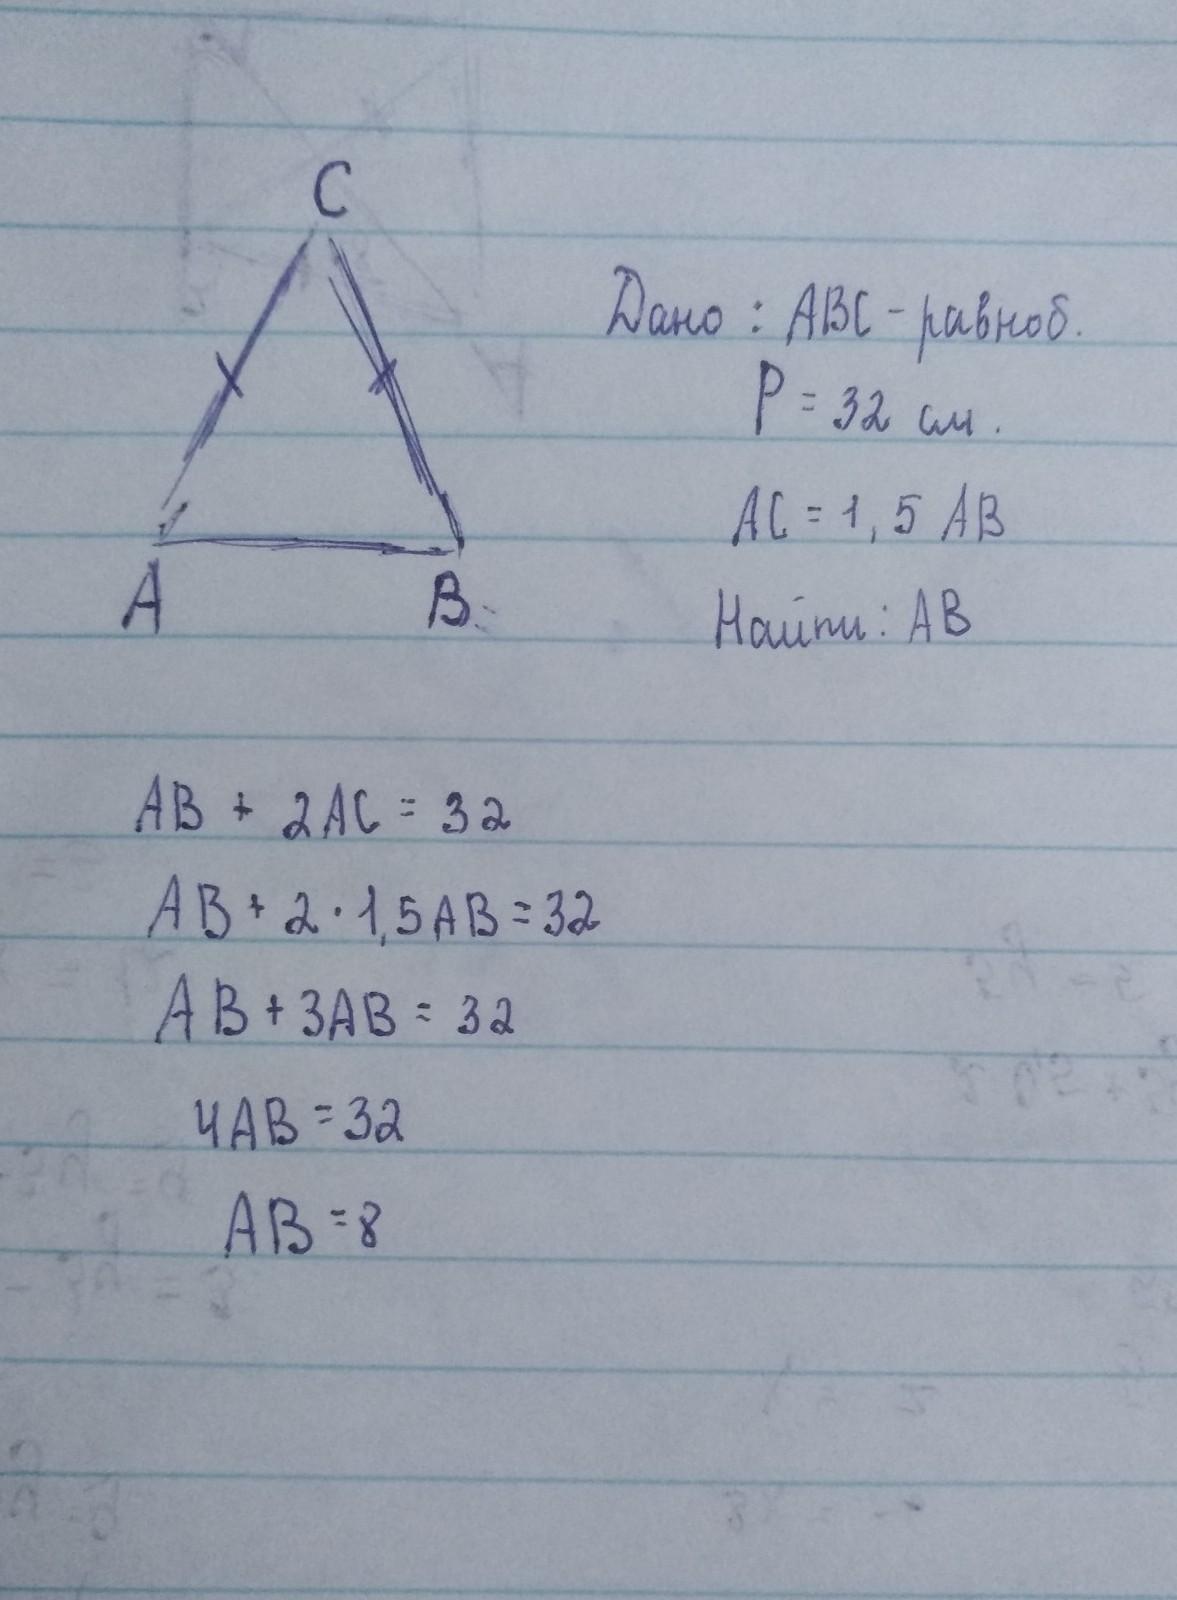 C
A
B
Дано: ABC - равноб.
P = 32 см.
AC = 1,5 AB
Найти: AB
AB + 2AC = 32
AB + 2 · 1,5AB = 32
AB + 3AB = 32
4AB = 32
AB = 8